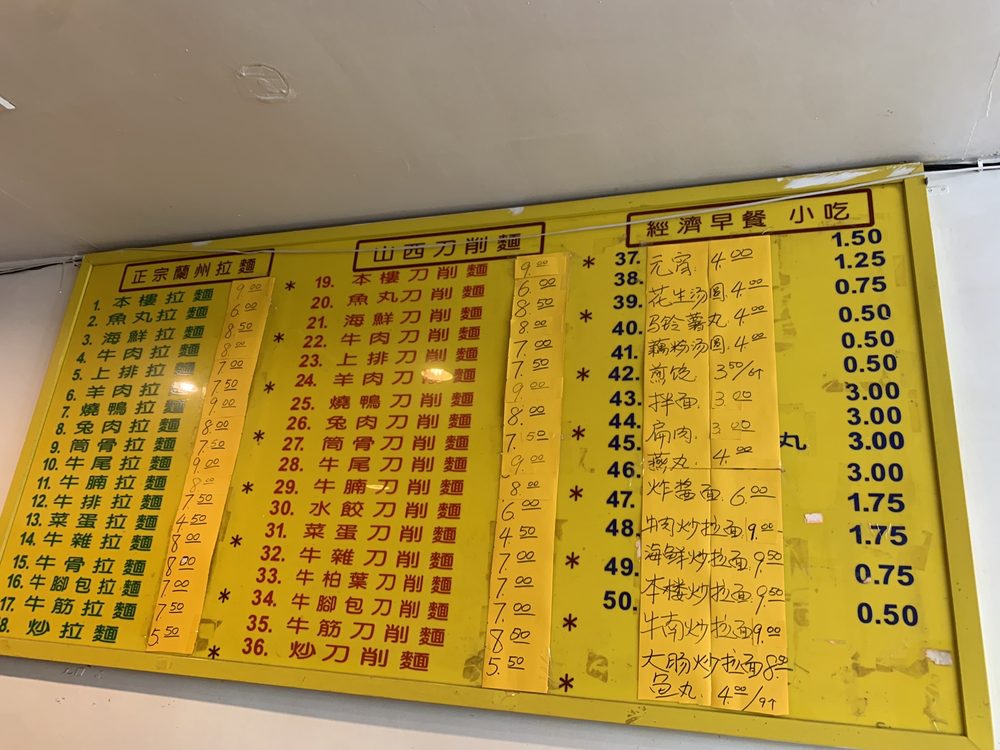 正宗蘭州拉麵
1. 本樓拉麵 9.00
2. 魚丸拉麵 6.00
3. 海鮮拉麵 8.50
4. 牛肉拉麵
5. 上排拉麵 7.00
6. 羊肉拉麵 7.50
7. 燒鴨拉麵 9.00
8. 兔肉拉麵 8.00
9. 筒骨拉麵 7.50
10. 牛尾拉麵 9.00
11. 牛腩拉麵 8.00
12. 牛排拉麵 7.50
13. 菜蛋拉麵 4.50
14. 牛雜拉麵 8.00
15. 牛骨拉麵 8.00
16. 牛腳包拉麵 7.00
17. 牛筋拉麵 7.50
8. 炒拉麵 5.50
山西刀削麵
* 19. 本樓刀削麵 9.00
20. 魚丸刀削麵 6.00
* 21. 海鮮刀削麵 8.50
22. 牛肉刀削麵 8.00
23. 上排刀削麵 7.00
* 24. 羊肉刀削麵 7.50
25. 燒鴨刀削麵 9.00
* 26. 兔肉刀削麵 8.00
27. 筒骨刀削麵 7.50
* 28. 牛尾刀削麵 9.00
29. 牛腩刀削麵 8.00
30. 水餃刀削麵 6.00
* 31. 菜蛋刀削麵 4.50
32. 牛雜刀削麵 7.00
* 33. 牛柏葉刀削麵 7.00
34. 牛腳包刀削麵 7.00
35. 牛筋刀削麵
* 36. 炒刀削麵 5.50
經濟早餐 小吃
* 37. 元宵 4.00 1.50
38. 花生汤圆 4.00 1.25
* 39. 马铃薯丸 4.00 0.75
40. 藕粉汤圆 4.00 0.50
* 41. 煎饺 3.50/6个 0.50
42. 拌面 3.00 0.50
* 43. 扁肉 3.00 3.00
44. 燕丸 4.00 3.00
* 45. 炸醬面 6.00 丸 3.00
46. 牛肉炒拉面 9.00 3.00
* 47. 海鮮炒拉面 9.50 1.75
48. 本楼炒拉面 9.50 1.75
* 49. 牛南炒拉面 9.00 0.75
* 50. 大肠炒拉面 8.00 0.50
* 鱼丸 4.00/9个